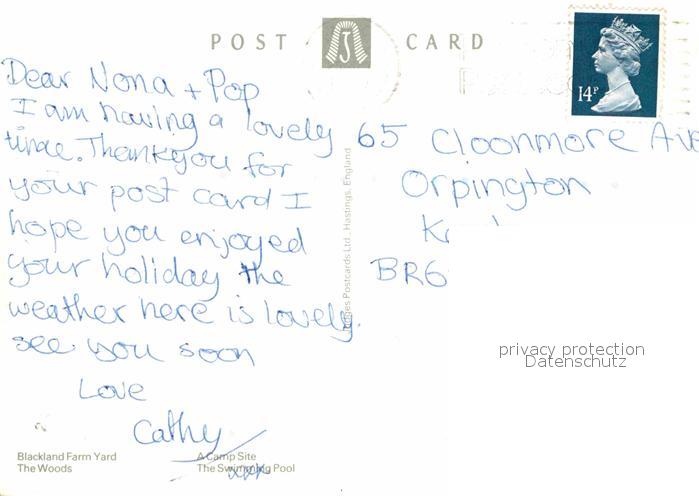 POST CARD
14P
Dear Nona + Pop
I am having a lovely
time. Thankyou for
your post card I
hope you enjoyed
your holiday the
weather here is lovely.
see you soon
Love
Cathy
xxx
65 Cloonmore Ave
Orpington
BR6
Judges Postcards Ltd., Hastings, England
privacy protection
Datenschutz
Blackland Farm Yard
The Woods
A Camp Site
The Swimming Pool